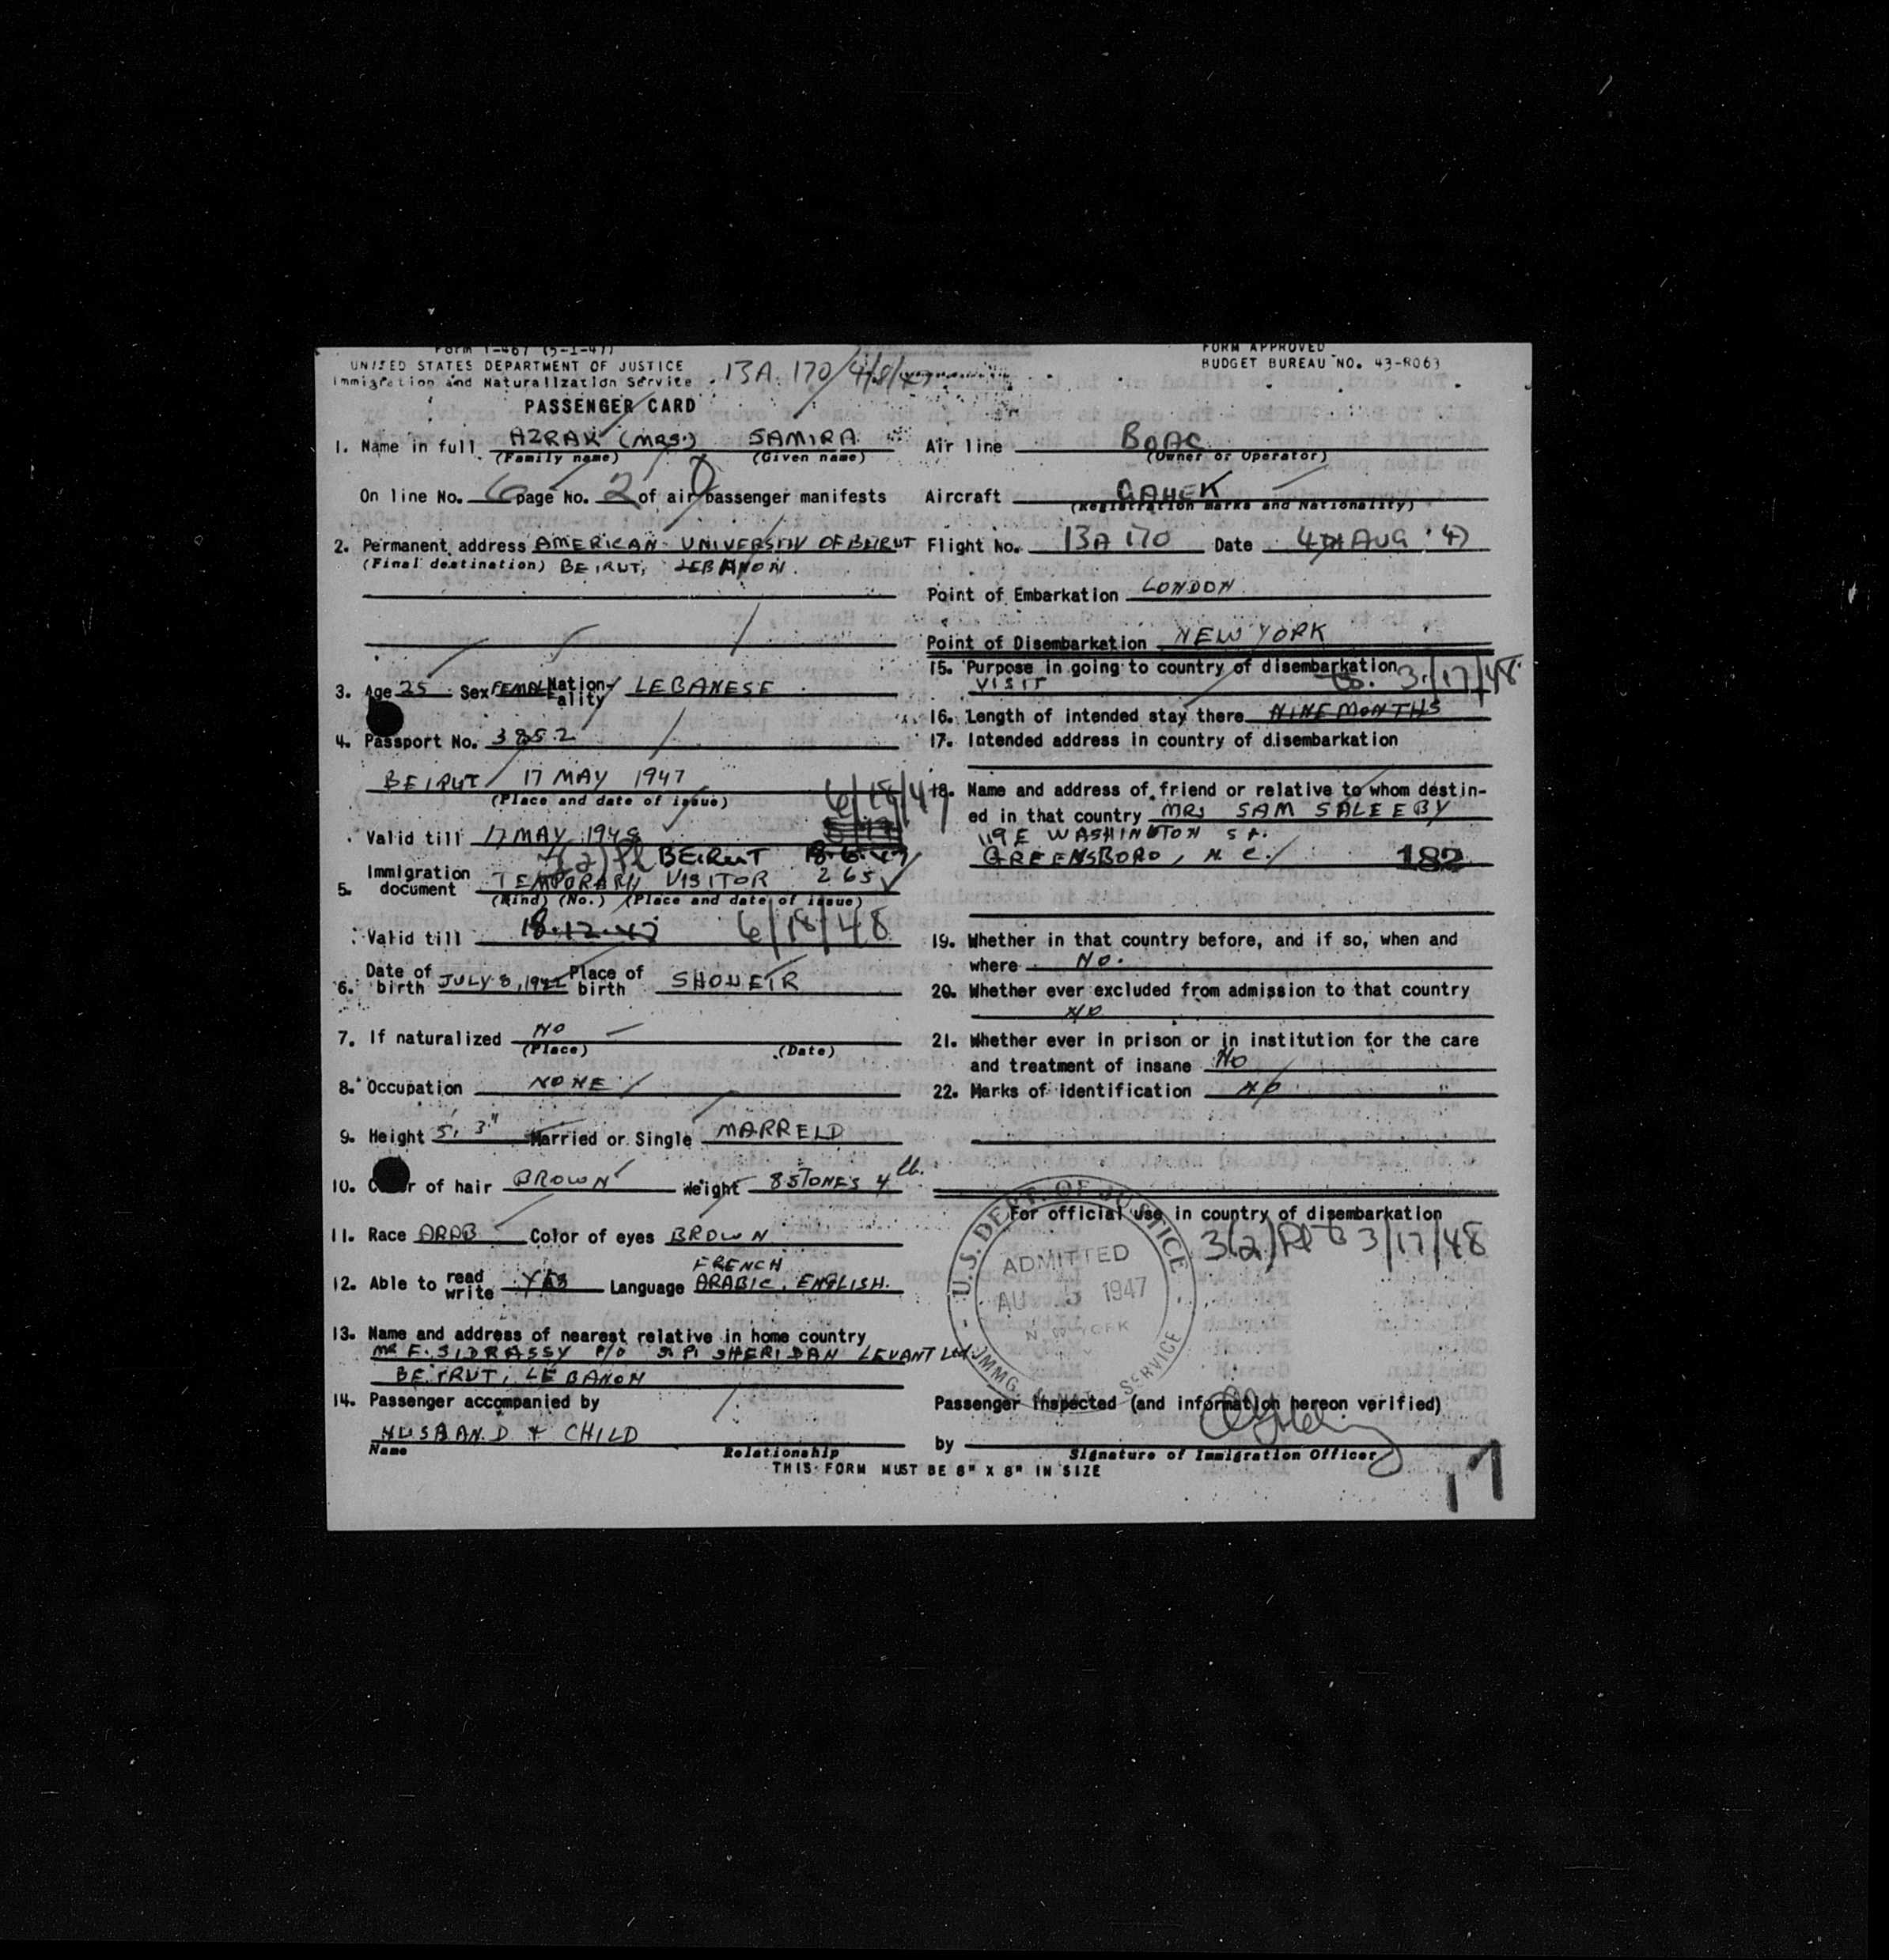 Form I-467 (5-1-47)
UNITED STATES DEPARTMENT OF JUSTICE
Immigration and Naturalization Service
13A 170/4/8/47
FORM APPROVED
BUDGET BUREAU NO. 43-R063
PASSENGER CARD
1. Name in full AZRAK (MRS.) SAMIRA
(Family name) (Given name)
On line No. 6 page No. 2 of air passenger manifests
2. Permanent address AMERICAN UNIVERSITY OF BEIRUT
(Final destination) BEIRUT, LEBANON.
3. Age 25 Sex FEMALE Nationality LEBANESE
4. Passport No. 3852
BEIRUT 17 MAY 1947
(Place and date of issue)
6/18/47
Valid till 17 MAY 1948
3(2) BEIRUT 18.6.47
5. Immigration document TEMPORARY VISITOR 265
(Kind) (No.) (Place and date of issue)
Valid till 18.12.47 6/18/48
6. Date of birth JULY 8, 1922 Place of birth SHOWEIR
7. If naturalized NO
(Place) (Date)
8. Occupation NONE
9. Height 5' 3" Married or Single MARREID
10. Color of hair BROWN Weight 8 STONES 4 lb.
11. Race ARAB Color of eyes BROWN
FRENCH
12. Able to read write YES Language ARABIC, ENGLISH.
13. Name and address of nearest relative in home country
MR F. SIDRASSY SHERIDAN LEVANT Ltd
BEIRUT, LEBANON
14. Passenger accompanied by
HUSBAND + CHILD
Name Relationship
THIS FORM MUST BE 8" X 8" IN SIZE
Air line BOAC
(Owner or Operator)
Aircraft GAHEK
(Registration marks and Nationality)
Flight No. 13A 170 Date 4TH AUG '47
Point of Embarkation LONDON
Point of Disembarkation NEW YORK
15. Purpose in going to country of disembarkation
VISIT to 3/17/48
16. Length of intended stay there NINE MONTHS
17. Intended address in country of disembarkation
18. Name and address of friend or relative to whom destin-
ed in that country MRS SAM SALEEBY
119 E WASHINGTON ST.
GREENSBORO, N. C. 182
19. Whether in that country before, and if so, when and
where NO.
20. Whether ever excluded from admission to that country
NO
21. Whether ever in prison or in institution for the care
and treatment of insane NO
22. Marks of identification NO
For official use in country of disembarkation
3(2) 3/17/48
U.S. DEPT. OF JUSTICE
ADMITTED
AU 5 1947
NEW YORK
IMMG. & NAT. SERVICE
Passenger inspected (and information hereon verified)
by
Signature of Immigration Officer
17